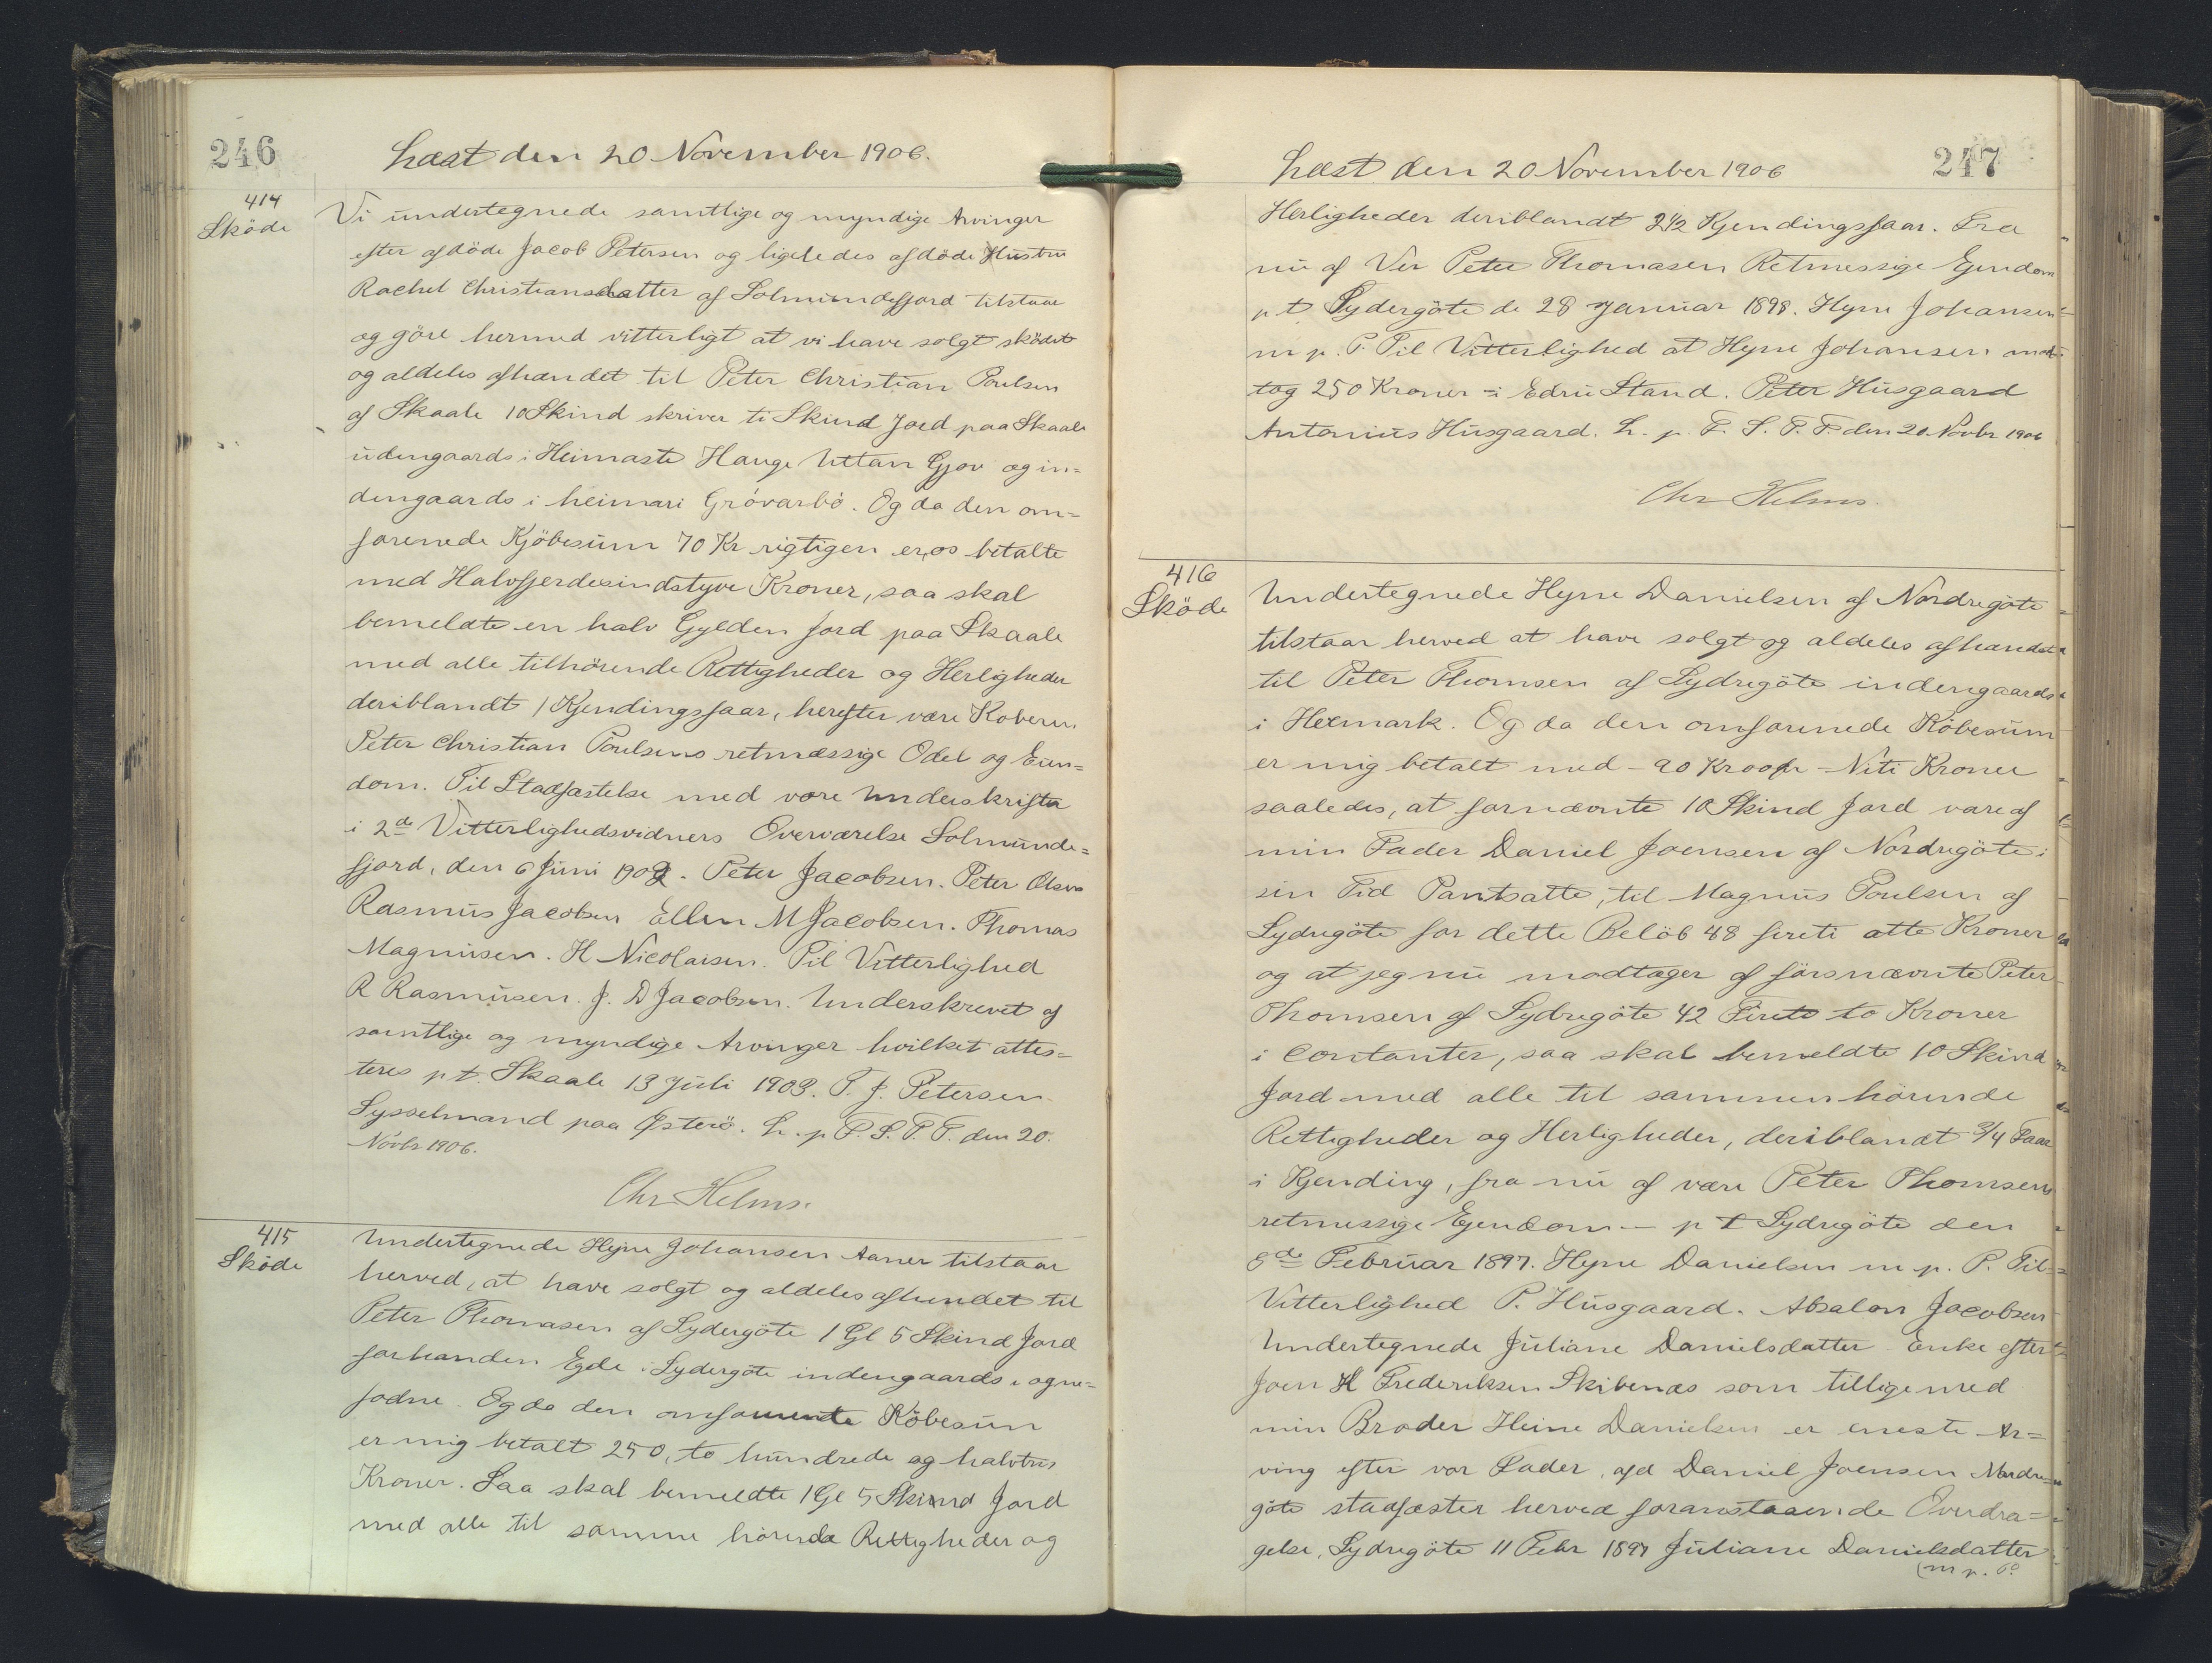 246
Læst den 20 November 1906.
414
Sköde
Vi undertegnede samtlige og myndige Arvinger
efter afdöde Jacob Petersen og ligeledes afdöde Hustru
Rachel Christiansdatter af Solmundefjord tilstaar
og göre hermed vitterligt at vi have solgt sködet
og aldeles afhændet til Peter Christian Poulsen
af Skaale 10 Skind skriver ti Skind Jord paa Skaale
udengaards i Heimaste Hauge Uttan Gjov og in=
dengaards i heimari Gróvarbö. Og da den om=
forenede Kjöbesum 70 Kr rigtigen er os betalte
med Halvfjerdesindstyve Kroner, saa skal
bemeldte en halv Gylden Jord paa Skaale
med alle tilhörende Rettigheder og Herligheder
deriblandt 1 Kjendingsfaar, herefter være Koberen
Peter Christian Poulsens retmæssige Odel og Eien=
dom. Til Stadfæstelse med vore Underskrifter
i 2de Vitterlighedsvidners Overværelse Solmunde=
fjord, den 6 Juni 1903. Peter Jacobsen. Peter Olsen
Rasmus Jacobsen Ellen M Jacobsen. Thomas
Magnusen. H Nicolaisen. Til Vitterlighed
R Rasmusen. J. D Jacobsen. Underskrevet af
samtlige og myndige Arvinger hvilket attes=
teres p t. Skaale 13 Juli 1903. P. J. Petersen
Sysselmand paa Österö. L. p F. S. T. P. den 20.
Novbr 1906.
Chr Helms.
415
Sköde
Undertegnede Hejne Johansen Aaner tilstaar
herved, at have solgt og aldeles afhendet til
Peter Thomasen af Sydergöte 1 Gl 5 Skind Jord
forhanden Egde i Sydergöte indengaards i ogne=
fodne. Og da den omforente Köbesum
er mig betalt 250, to hundrede og halvtres
Kroner. Saa skal bemeldte 1 Gl 5 Skind Jord
med alle til samme hörende Rettigheder og
247
Læst den 20 November 1906
Herligheder deriblandt 2 1/2 Kjendingsfaar. Fra
nu af Ver Peter Thomasen Retmessige Ejendom
p t Sydergöte de 28 Januar 1898. Hejne Johansen
m p. P. Til Vitterlighed at Hejne Johansen mod=
tog 250 Kroner i Edru Stand. Peter Husgaard
Antonius Husgaard. L. p. F. S. T. P. den 20. Novbr 1906
Chr Helms.
416
Sköde
Undertegnede Hejne Danielsen af Nordregöte
tilstaar herved at have solgt og aldeles afhændet
til Peter Thomsen af Sydregöte indengaards
i Heimark. Og da den omforenede Köbesum
er mig betalt med - 90 Kr - Niti Kroner
saaledes, at fornævnte 10 Skind Jord vare af
min Fader Daniel Joensen af Nordregöte i
sin Tid Pantsatte, til Magnus Poulsen af
Sydregöte for dette Belöb 48 fireti otte Kroner
og at jeg nu modtager af förnævnte Peter
Thomsen af Sydregöte 42 Fireto to Kroner
i Contanter, saa skal bemeldte 10 Skind
Jord med alle til sammen hörende
Rettigheder og Herligheder, deriblandt 3/4 Faar
i Kjending, fra nu af være Peter Thomsens
retmessige Ejendom - p t Sydregöte den
8de Februar 1897. Hejne Danielsen m p. P. Til
Vitterlighed P. Husgaard. Absalon Jacobsen
Undertegnede Juliane Danielsdatter Enke efter
Joen H Frederiksen Skibenæs som tilligemed
min Broder Heine Danielsen er eneste Ar=
ving efter vor Fader, afd Daniel Joensen Nordre=
göte stadfæster herved foranstaaende Overdra=
gelse, Sydregöte 11 Febr 1897 Juliane Danielsdatter
m p. P.